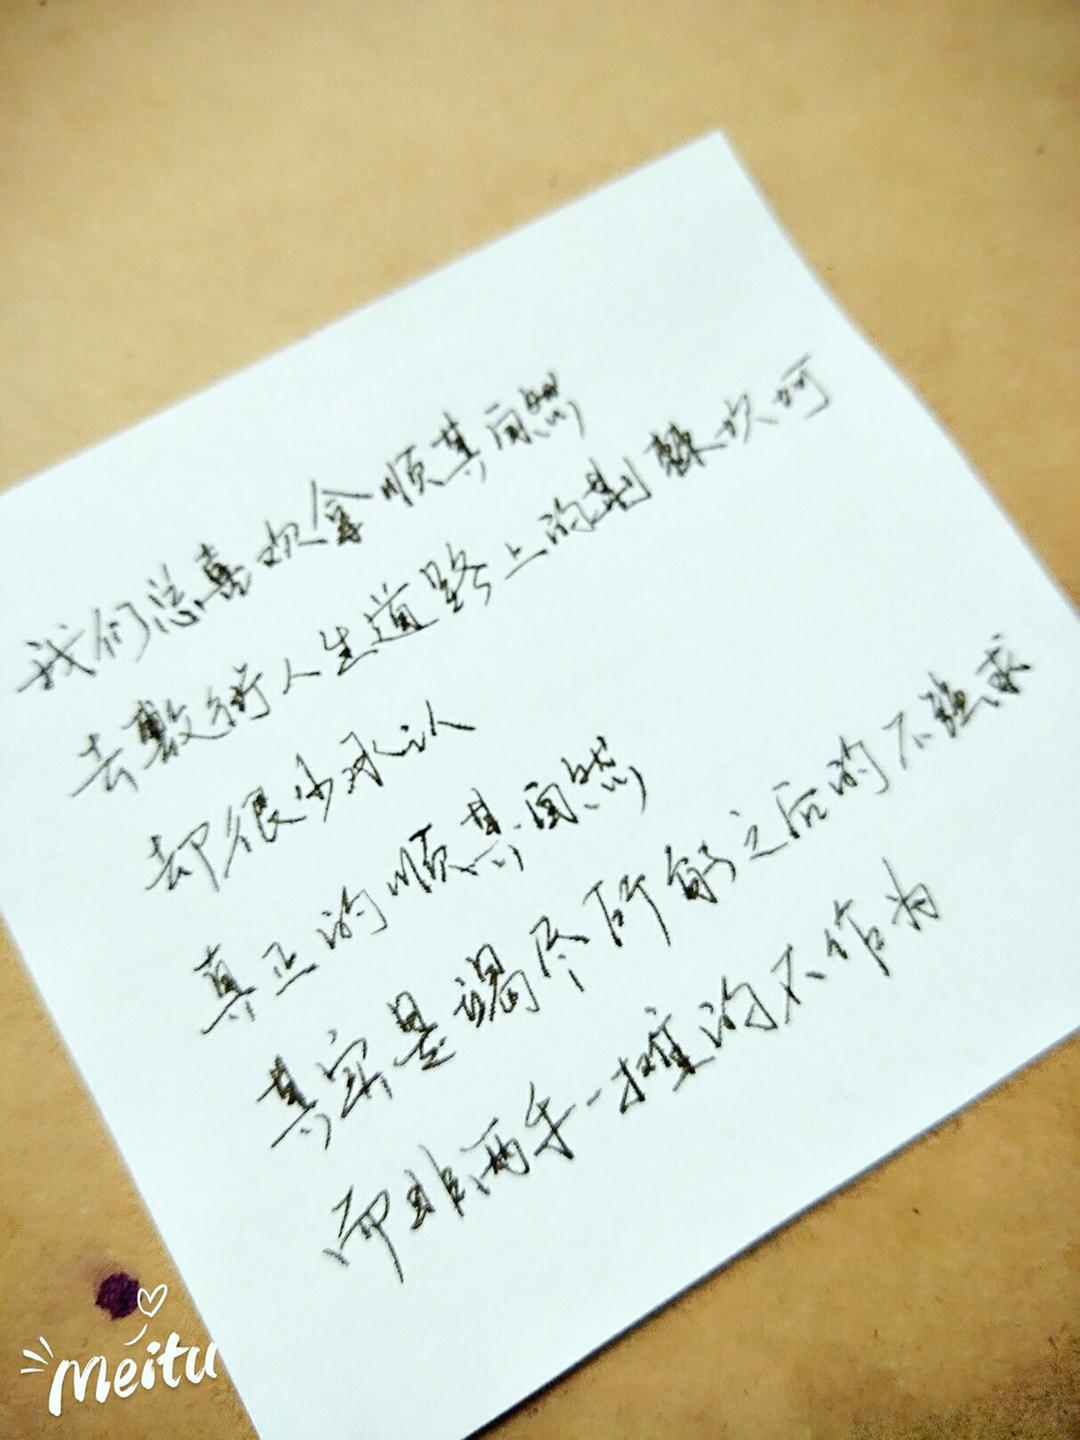 我们总喜欢拿顺其自然
去敷衍人生道路上的荆棘坎坷
却很少承认
真正的顺其自然
其实是竭尽所能之后的不强求
而非两手一摊的不作为
Meitu